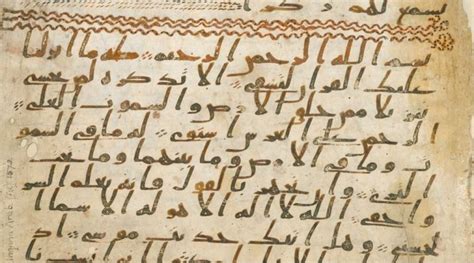 تسمع لهم
بسم الله الرحمن الرحيم طه ما انزلنا
عليك القران لتشقى الا تذكرة لمن يخشى
تنزيلا ممن خلق الارض والسموت العلى
الرحمن على العرش استوى له ما في السمو
ت وما في الارض وما بينهما وما تحت
الثرى وان تجهر بالقول فانه يعلم السر
واخفى الله لا اله الا هو له الاسما ا
لحسنى وهل اتيك حديث موسى اذ